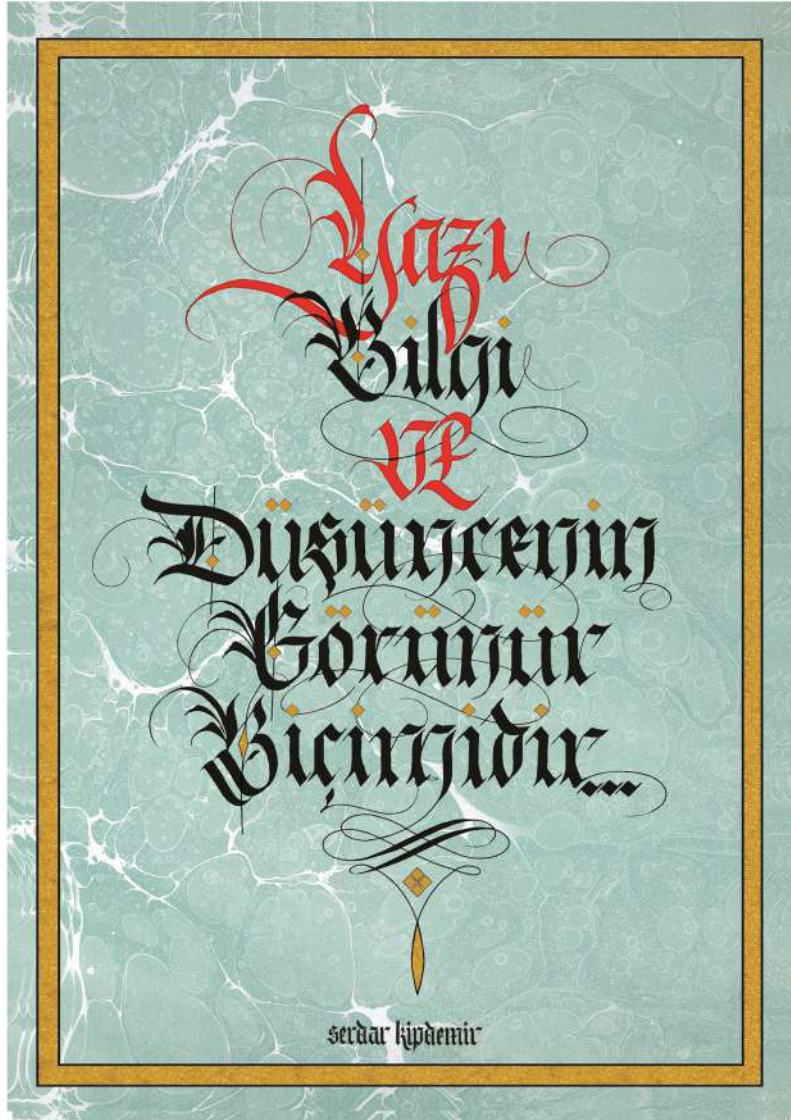 Yazı
Bilgi
ve
Düşüncenin
Görünür
Biçimidir...
serdar kipdemir